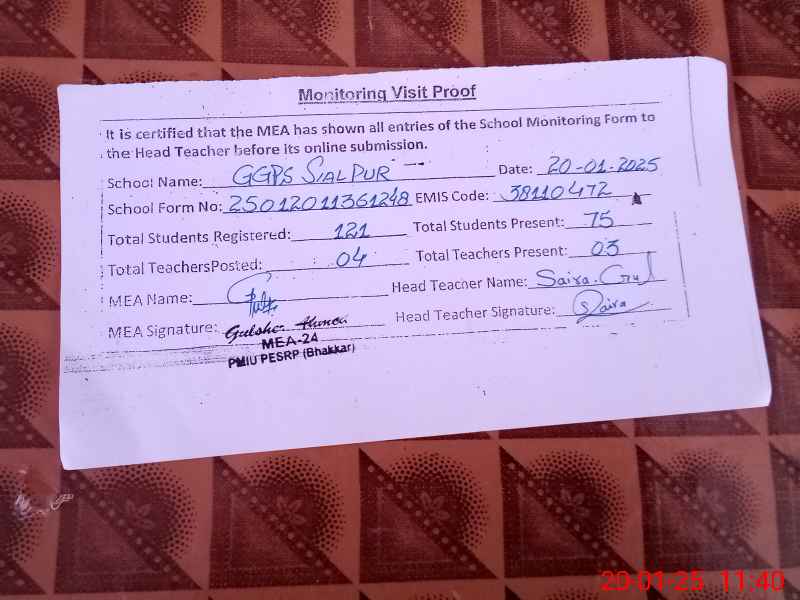 Monitoring Visit Proof
It is certified that the MEA has shown all entries of the School Monitoring Form to
the Head Teacher before its online submission.
School Name: GGPS SIALPUR Date: 20-01-2025
School Form No: 25012011361248 EMIS Code: 38110472
Total Students Registered: 121 Total Students Present: 75
Total TeachersPosted: 04 Total Teachers Present: 03
MEA Name: Head Teacher Name: Saira Gul
MEA Signature: Gulsher Head Teacher Signature: Saira
MEA-24
PMIU PESRP (Bhakkar)
20-01-25 11:40